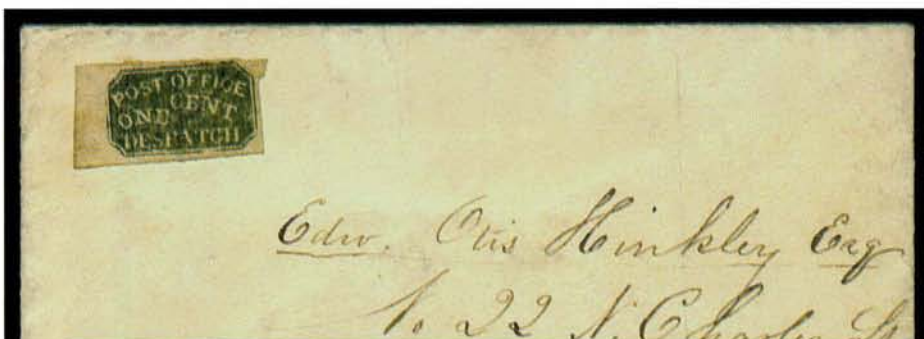 POST OFFICE
ONE CENT
DESPATCH
Edw. Otis Hinkley Esq
No 22 N. Charles St